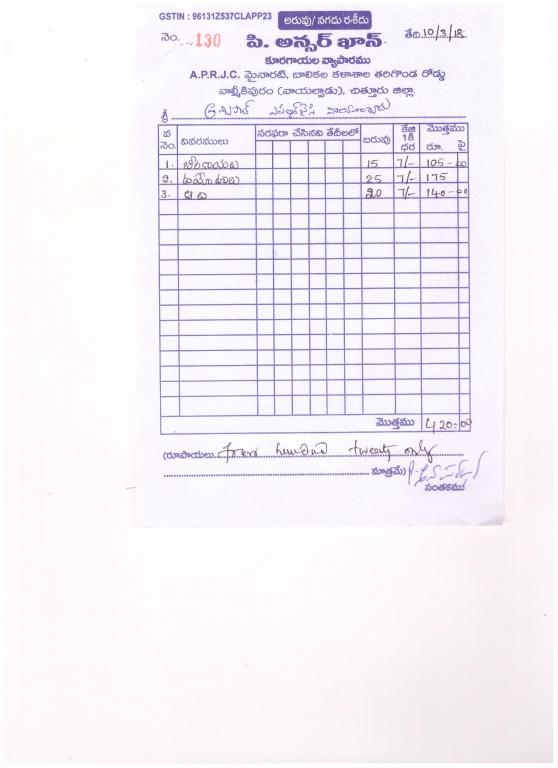 GSTIN : 96131Z537CLAPP23
అరువు/ నగదు రశీదు
నెం. 130 తేది 10/3/18
పి. అన్సర్ ఖాన్
కూరగాయల వ్యాపారము
A.P.R.J.C. మైనారటి, బాలికల కళాశాల తరిగొండ రోడ్డు
వాల్మీకిపురం (వాయల్పాడు), చిత్తూరు జిల్లా
శ్రీ
వ నెం. వివరములు సరఫరా చేసినవి తేదీలలో బరువు కేజి 1కి ధర మొత్తము రూ. పై
1. 15 7/- 105-00
2. టమోటాలు 25 7/- 175
3. 20 7/- 140-00
మొత్తము 420-00
(రూపాయలు four hundred twenty only
మాత్రమే)
సంతకము